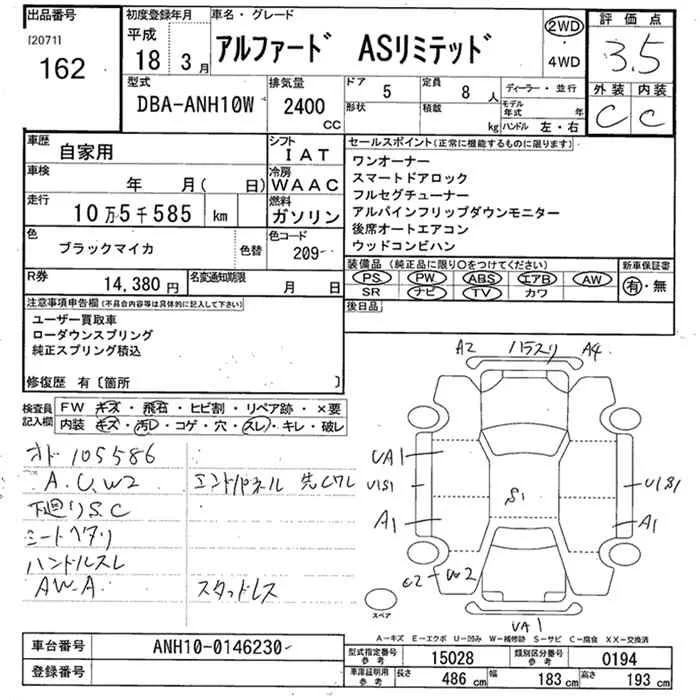 出品番号
[20711
162
初度登録年月
平成
18 3月
車名・グレード
アルファード ASリミテッド
2WD
・
4WD
評価点
3.5
外装 内装
C C
型式
DBA-ANH10W
排気量
2400
CC
ドア
5
形状
定員
8人
積載
kg
ディーラー・並行
モデル年式 年
ハンドル 左・右
車歴
自家用
シフト
IAT
車検
年 月( 日)
冷房
WAAC
走行
10万5千585 km
燃料
ガソリン
色
ブラックマイカ
色替
色コード
209-
R券
14,380円
名変通知期限
月 日
セールスポイント(正常に機能するものに限ります)
ワンオーナー
スマートドアロック
フルセグチューナー
アルパインフリップダウンモニター
後席オートエアコン
ウッドコンビハン
装備品(純正品に限り○をつけてください)
PS PW ABS エアB AW
SR ナビ TV カワ
新車保証書
有・無
後日品
注意事項申告欄(不具合内容等は具体的に記入して下さい)
ユーザー買取車
ローダウンスプリング
純正スプリング積込
修復歴 有〔箇所 〕
検査員記入欄
FW キズ・飛石・ヒビ割・リペア跡・×要
内装 キズ・汚レ・コゲ・穴・スレ・キレ・破レ
オド 105586
A.U.W2
下廻りS.C
シートヘタリ
ハンドルスレ
AW.A
エンドパネル
スタッドレス
A2 ハラスリ A4
UA1
U1S1
A1
S1
U1S1
A1
U2-W2
UA1
スペア
A-キズ E-エクボ U-凹み W-補修跡 S-サビ C-腐食 XX-交換済
車台番号
ANH10-0146230-
登録番号
型式指定番号
参考
15028
類別区分番号
参考
0194
車庫証明用
参考
長さ 486cm 幅 183cm 高さ 193cm